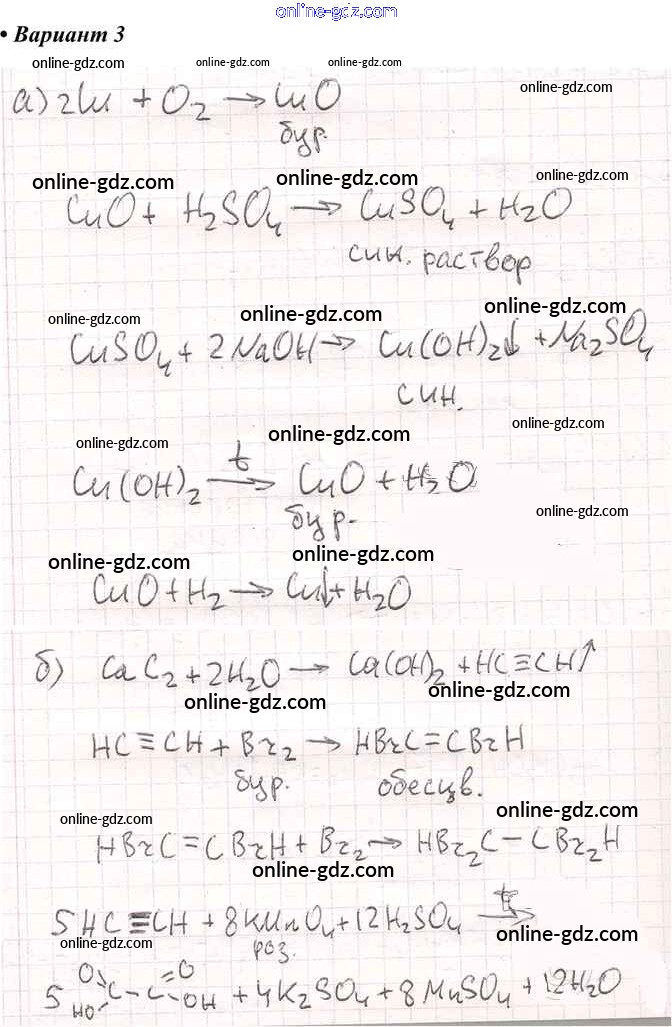 online-gdz.com
• Вариант 3
online-gdz.com online-gdz.com online-gdz.com
online-gdz.com
а) 2Cu + O2 → CuO
бур.
online-gdz.com online-gdz.com online-gdz.com
CuO + H2SO4 → CuSO4 + H2O
син. раствор
online-gdz.com online-gdz.com online-gdz.com
CuSO4 + 2NaOH → Cu(OH)2↓ + Na2SO4
син.
online-gdz.com
online-gdz.com online-gdz.com
t
Cu(OH)2 → CuO + H2O
бур.
online-gdz.com
online-gdz.com online-gdz.com
CuO + H2 → Cu↓ + H2O
б) CaC2 + 2H2O → Ca(OH)2 + HC≡CH↑
online-gdz.com online-gdz.com
HC≡CH + Br2 → HBrC=CBrH
бур. обесцв.
online-gdz.com online-gdz.com
HBrC=CBrH + Br2 → HBr2C-CBr2H
online-gdz.com
t
5HC≡CH + 8KMnO4 + 12H2SO4 →
роз.
online-gdz.com online-gdz.com
O O
5 HO C-C OH + 4K2SO4 + 8MnSO4 + 12H2O